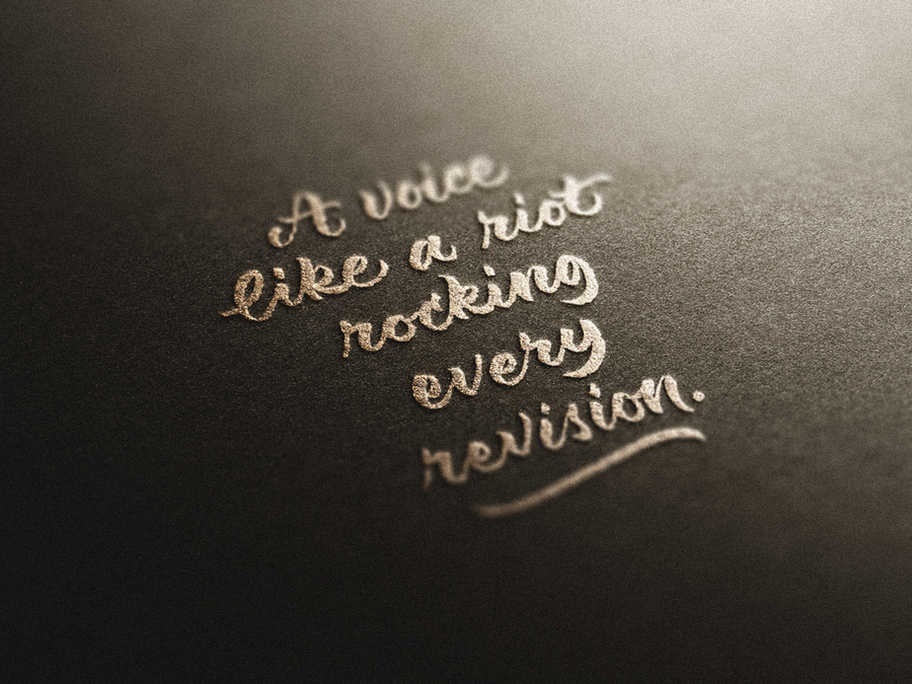 A voice
like a riot
rocking
every
revision.